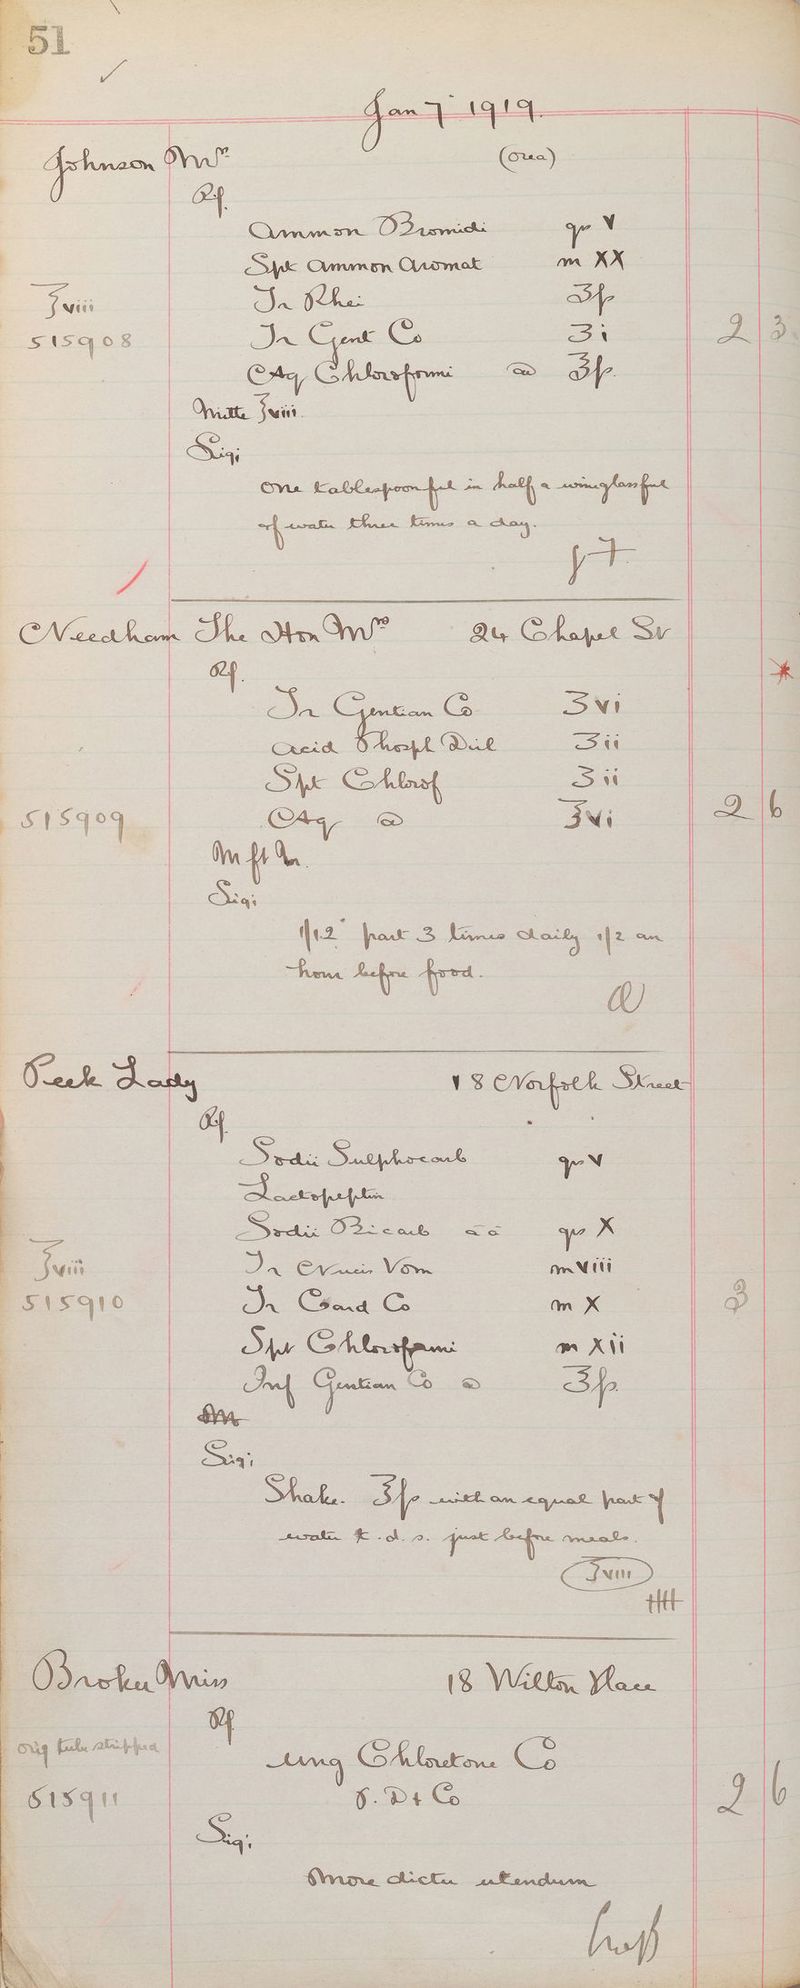 51
Jan 7 1919.
Johnson Mrs
Rp.
Ammon Bromidi grs V
Spt Ammon Aromat m XX
ʒviii Tr Rhei ʒſs
515908 Tr Gent Co ʒi 2 3
Aq Chloroformi ad ℥ſs
Mitte ℥viii.
Sig:
One tablespoonful in half a wineglassful
of water three times a day.
Needham The Hon Mrs 24 Chapel St
Rp.
Tr Gentian Co ʒvi
Acid Phosph Dil ʒii
Spt Chlorof ʒii
515909 Aq ad ℥vi 2 6
M ft m.
Sig:
1/12 part 3 times daily 1/2 an
hour before food.
Peek Lady 18 Norfolk Street
Rp.
Sodii Sulphocarb grs V
Lactopeptin
Sodii Bicarb āā grs X
℥viii Tr Nucis Vom m viii
515910 Tr Card Co m X 3
Spt Chloroformi m xii
Inf Gentian Co ad ℥ſs
M
Sig:
Shake. ℥ſs with an equal part of
water t.d.s. just before meals.
℥viii
Miss 18 Wilton Place
Rp
orig tube stripped
Ung Chloretone Co
515911 P. D + Co 2 6
Sig:
More dictu utendum